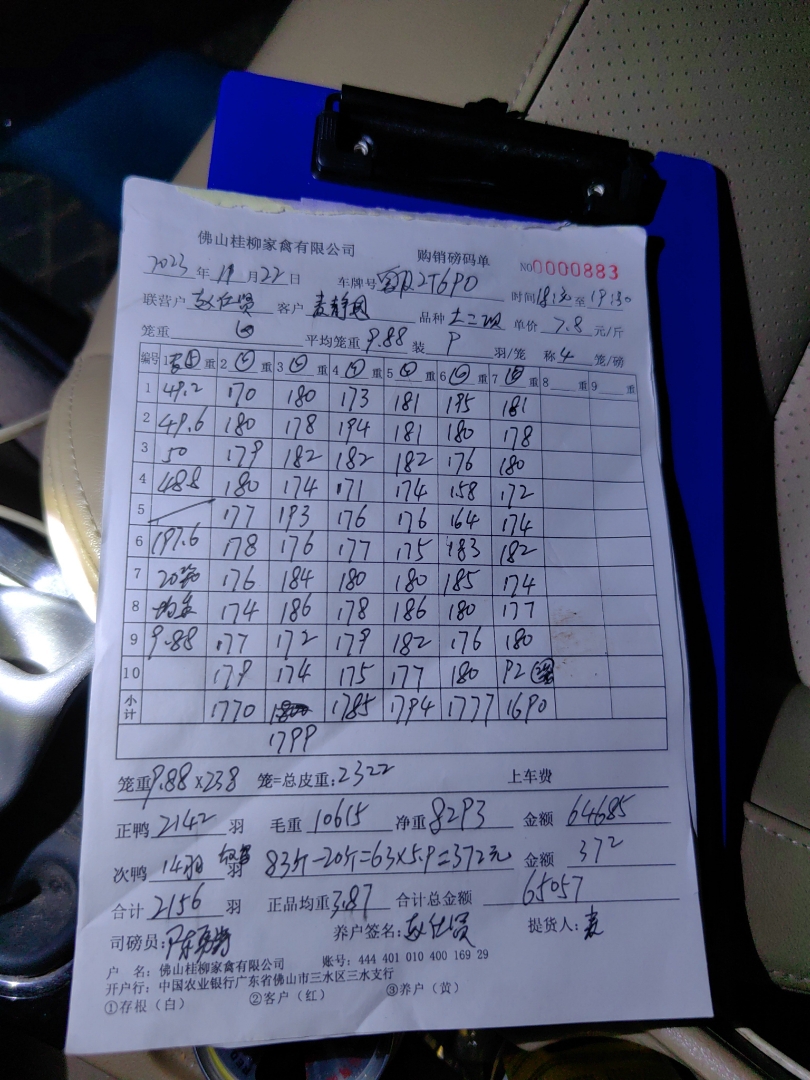 佛山桂柳家禽有限公司 购销磅码单 NO0000883
2023年11月22日 车牌号 2T690 时间 至19:30
联营户 赵仕贤 客户 麦静 品种 土二 单价 7.8 元/斤
笼重 平均笼重 9.88 装 9 羽/笼 称 4 笼/磅
编号 1 重 2 重 3 重 4 重 5 重 6 重 7 重 8 重 9 重
1 49.2 170 180 173 181 195 181
2 49.6 180 178 194 181 180 178
3 50 179 182 182 182 176 180
4 48.8 180 174 171 174 158 172
5 177 193 176 176 164 174
6 197.6 178 176 177 175 183 182
7 20笼 176 184 180 180 185 174
8 均重 174 186 178 186 180 177
9 9.88 177 172 179 182 176 180
10 179 174 175 177 180 92
小计 1770 1785 1794 1777 1690
1799
笼重9.88×238 笼=总皮重:2322 上车费
正鸭 2142 羽 毛重 10615 净重 8293 金额 64685
次鸭 14羽 羽 83斤-20斤=63×5.9=372元 金额 372
合计 2156 羽 正品均重3.87 合计总金额 65057
司磅员: 养户签名:赵仕贤 提货人:麦
户 名: 佛山桂柳家禽有限公司 账号: 444 401 010 400 169 29
开户行: 中国农业银行广东省佛山市三水区三水支行
①存根（白） ②客户（红） ③养户（黄）